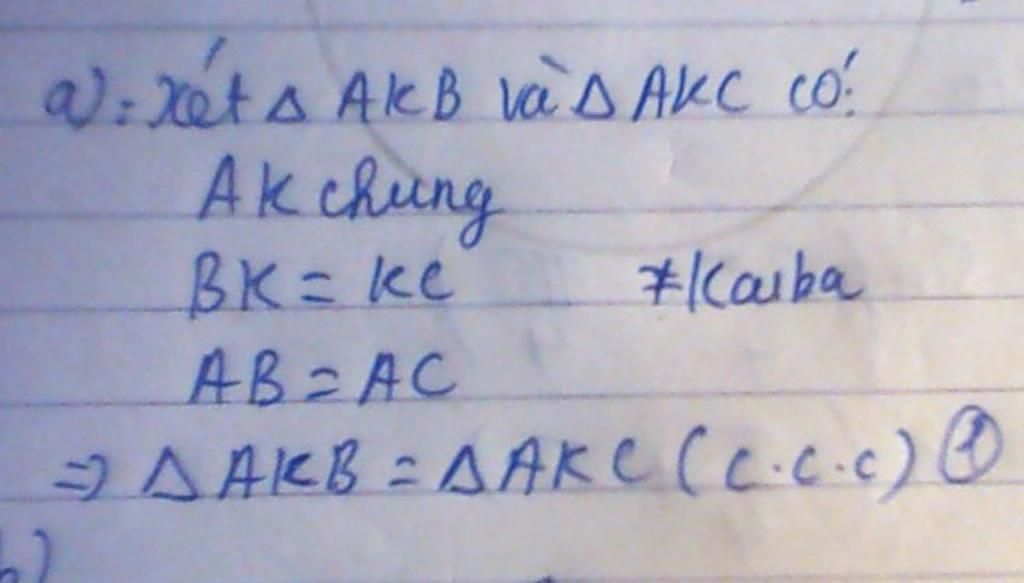 a): Xét Δ AKB và Δ AKC có:
AK chung
BK = KC *Kaiba
AB = AC
=> Δ AKB = Δ AKC (c.c.c) ①
b)